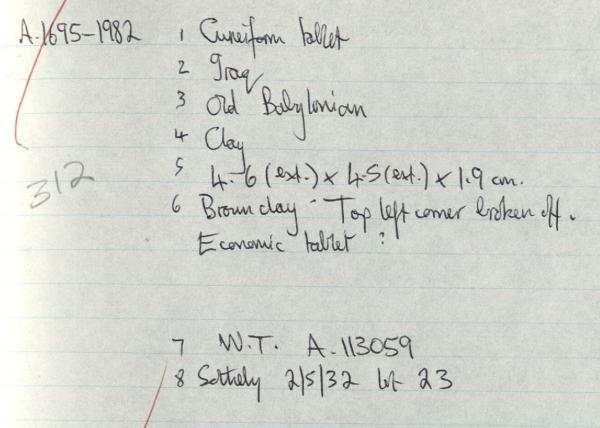 A.1695-1982 1 Cuneiform tablet
2 Iraq
3 Old Babylonian
4 Clay
5 4.6 (ext.) x 4.5 (ext.) x 1.9 cm.
312
6 Brown clay - Top left corner broken off.
Economic tablet ?
7 W.T. A.113059
8 Sotheby 2/5/32 lot 23